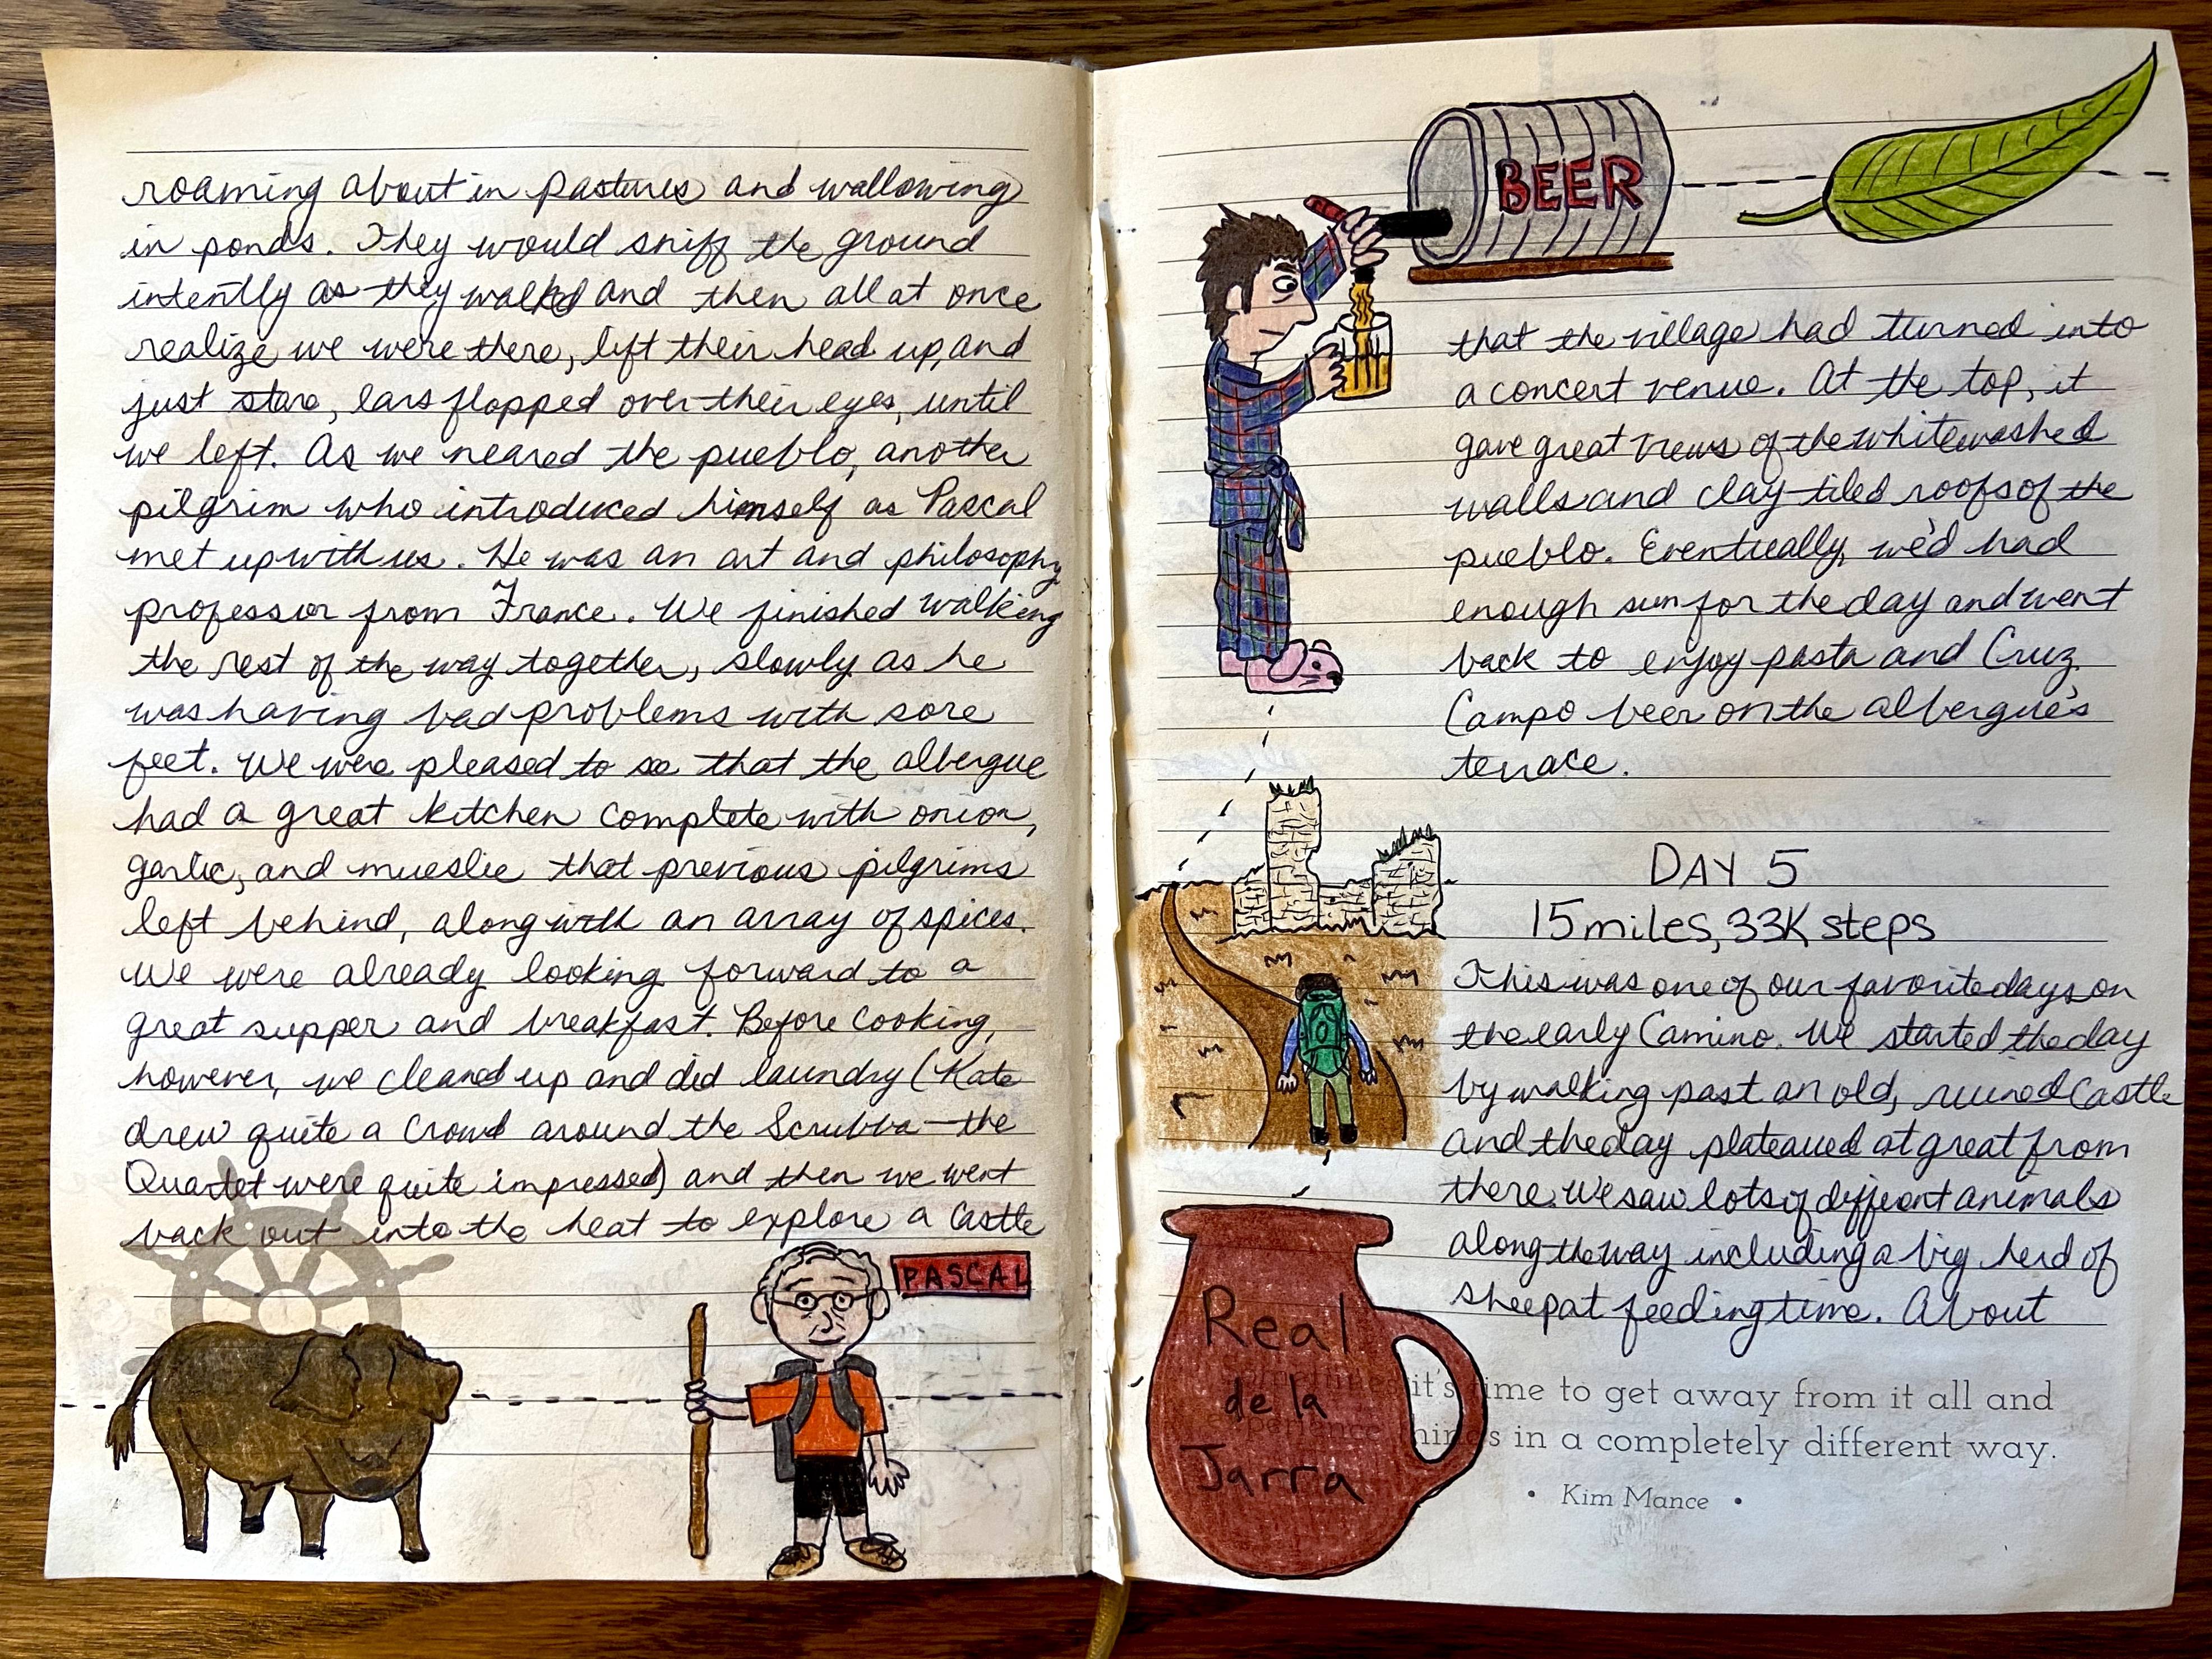 roaming about in pastures and wallowing
in ponds. They would sniff the ground
intently as they walked and then all at once
realize we were there, lift their head up, and
just stare, ears flopped over their eyes, until
we left. As we neared the pueblo, another
pilgrim who introduced himself as Pascal
met up with us. He was an art and philosophy
professor from France. We finished walking
the rest of the way together, slowly as he
was having bad problems with sore
feet. We were pleased to see that the albergue
had a great kitchen complete with onion,
garlic, and mueslie that previous pilgrims
left behind, along with an array of spices.
We were already looking forward to a
great supper and breakfast. Before cooking,
however, we cleaned up and did laundry (Kate
drew quite a crowd around the Scrubba—the
Quartet were quite impressed) and then we went
back out into the heat to explore a castle
PASCAL
BEER
that the village had turned into
a concert venue. At the top, it
gave great views of the whitewashed
walls and clay-tiled roofs of the
pueblo. Eventually, we'd had
enough sun for the day and went
back to enjoy pasta and Cruz
Campo beer on the albergue's
terrace.
DAY 5
15 miles, 33K steps
This was one of our favorite days on
the early Camino. We started the day
by walking past an old, ruined castle
and the day plateaued at great from
there. We saw lots of different animals
along the way including a big herd of
sheep at feeding time. About
Real
de la
Jarra
sometimes it's time to get away from it all and
experience things in a completely different way.
• Kim Mance •